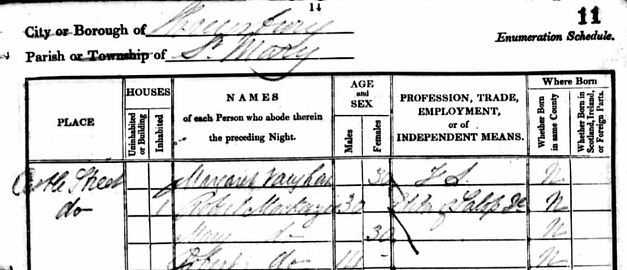 14
11
City or Borough of Shrewsbury
Parish or Township of St. Mary
Enumeration Schedule.
PLACE
HOUSES
Uninhabited or Building
Inhabited
NAMES
of each Person who abode therein
the preceding Night.
AGE
and
SEX
Males
Females
PROFESSION, TRADE,
EMPLOYMENT,
or of
INDEPENDENT MEANS.
Where Born
Whether Born in same County
Whether Born in Scotland, Ireland, or Foreign Parts.
Castle Street Margaret Vaughan F S N
do 1 Robert Mackenzie 30 of Salop N
Mary do N
Robert do 14